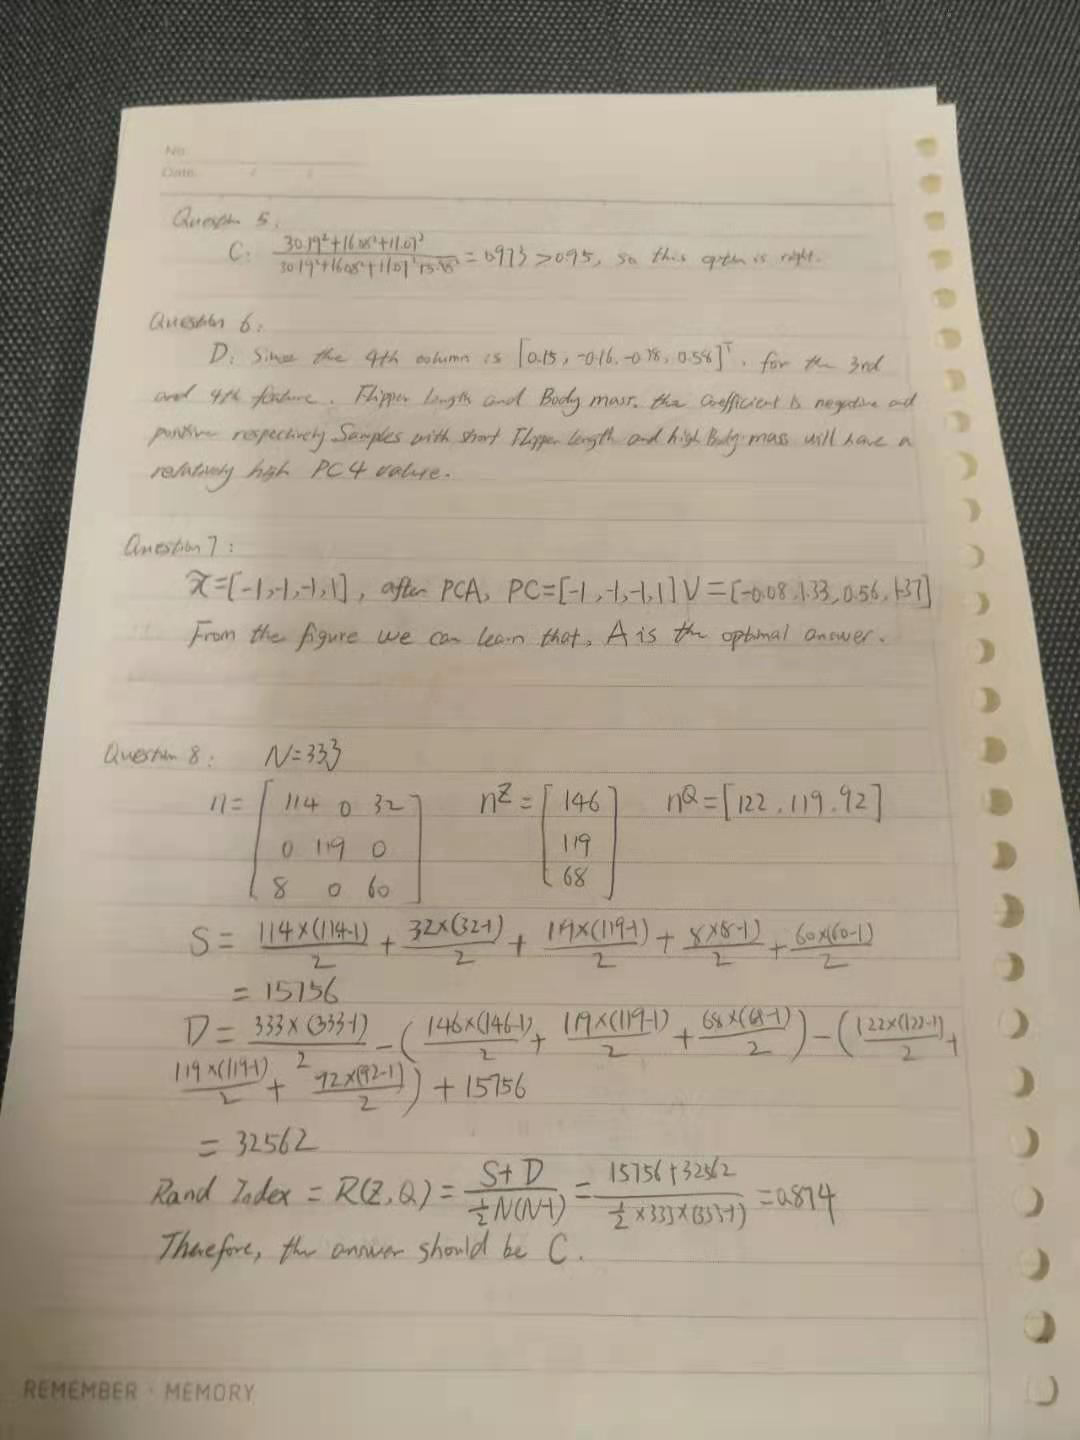 No.
Date. / /
Question 5.
C: (30.19²+16.08²+11.07²)/(30.19²+16.08²+11.07²+5.98²) = 0.973 > 0.95, so this option is right.
Question 6:
D: Since the 4th column is [0.15, -0.16, -0.78, 0.58]ᵀ, for the 3rd
and 4th feature. Flipper length and Body mass. the coefficient is negative and
positive respectively Samples with short Flipper length and high Body mass will have a
relatively high PC4 value.
Question 7:
x̃=[-1,-1,-1,1], after PCA, PC=[-1,-1,-1,1]V=[-0.08,1.33,0.56,1.37]
From the figure we can learn that, A is the optimal answer.
Question 8: N=333
n= [114 0 32 nᶻ = [146 nQ=[122, 119, 92]
0 119 0 119
8 0 60] 68]
S = 114×(114-1)/2 + 32×(32-1)/2 + 119×(119-1)/2 + 8×(8-1)/2 + 60×(60-1)/2
= 15756
D = 333×(333-1)/2 - (146×(146-1)/2 + 119×(119-1)/2 + 68×(68-1)/2) - (122×(122-1)/2 +
119×(119-1)/2 + 92×(92-1)/2) + 15756
= 32562
Rand Index = R(Z,Q) = (S+D)/(½N(N-1)) = (15756+32562)/(½×333×(333-1)) = 0.874
Therefore, the answer should be C.
REMEMBER · MEMORY